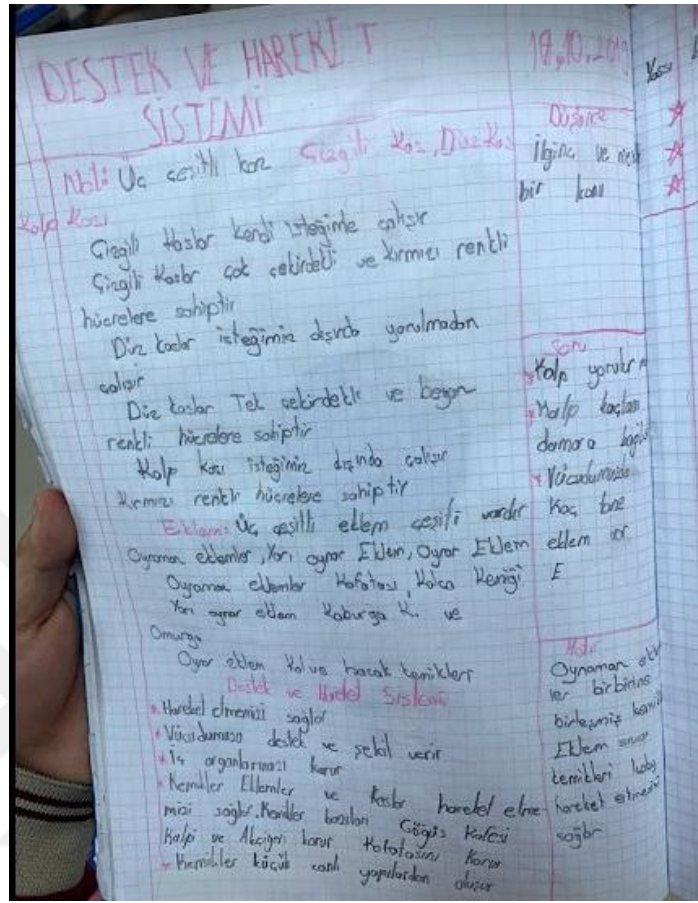 DESTEK VE HAREKET
SİSTEMİ
Not: Üç çesitli kas Çizgili Kas, Düz Kas
Kalp Kası
Çizgili Kaslar kendi isteğimle çalışır
Çizgili Kaslar çok çekirdekli ve kırmızı renkli
hücrelere sahiptir
Düz kaslar isteğimiz dışında yorulmadan
çalışır
Düz kaslar Tek çekirdekli ve beyaz
renkli hücrelere sahiptir
Kalp kası isteğimiz dışında çalışır
Kırmızı renkli hücrelere sahiptir
Eklem: Üç çeşitli eklem çeşiti vardır
Oynamaz eklemler, Yarı oynar Eklem, Oynar Eklem
Oynamaz eklemler Kafatası, Kalça Kemiği
Yarı oynar eklem Kaburga K. ve
Omurga
Oynar eklem Kol ve bacak kemikleri
Destek ve Hareket Sistemi
Hareket etmemizi sağlar
Vücudumuza destek ve şekil verir
İç organlarımızı korur
Kemikler Eklemler ve Kaslar hareket etme
mizi sağlar. Kemikler bazıları Göğüs Kafesi
Kalpi ve Akciğeri korur Kafatasını Korur
Kemikler küçük canlı yapılardan oluşur
18.10.2019
Düşünce
İlginç ve
bir konu
Soru
Kalp yorulur
Kalp kaçtan
damara
Vücudumuzda
Kaç tane
eklem
E
Oynamaz
ler birbirine
birleşmiş
Eklem
kemikleri
hareket etmesi
sağlar